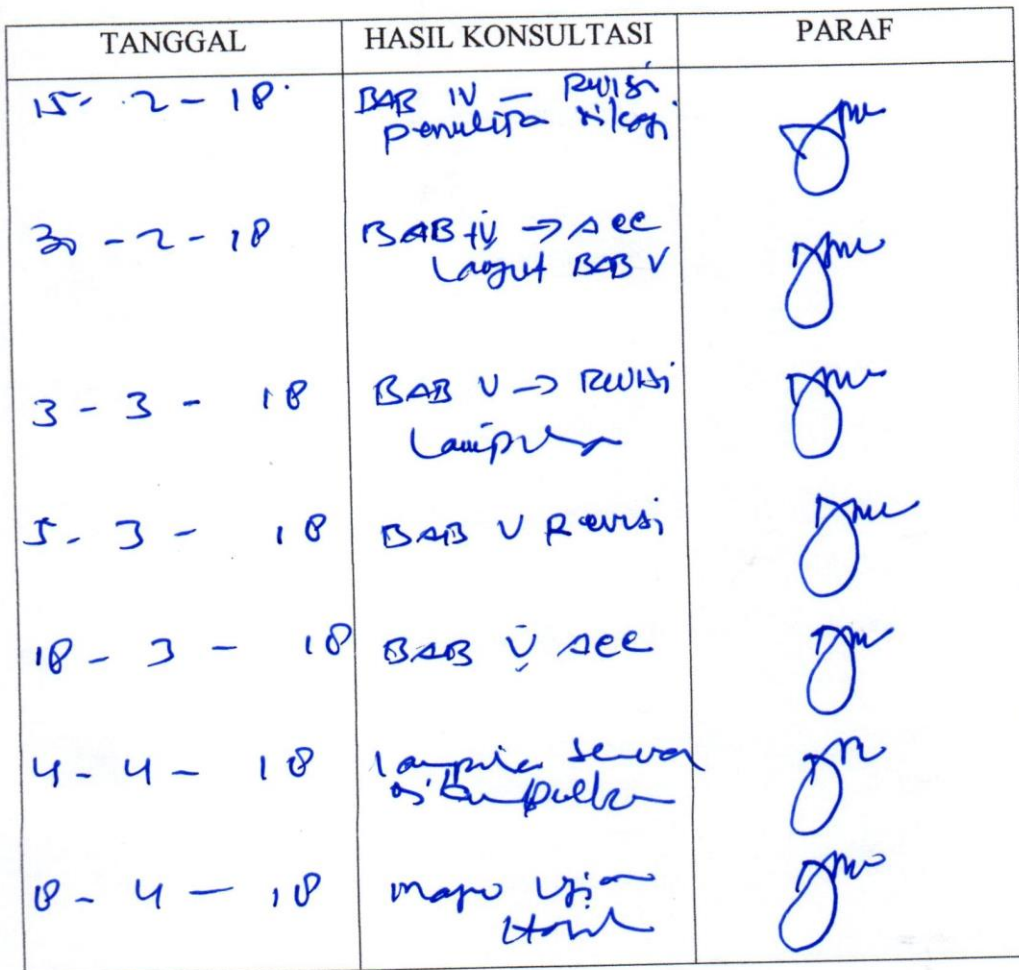 TANGGAL HASIL KONSULTASI PARAF
15 - 2 - 18 BAB IV — Revisi
penulisa
30 - 2 - 18 BAB IV → Acc
Lanjut BAB V
3 - 3 - 18 BAB V → Revisi
Lampiran
5 - 3 - 18 BAB V Revisi
18 - 3 - 18 BAB V Acc
4 - 4 - 18
8 - 4 - 18 maju Ujian
Hasil